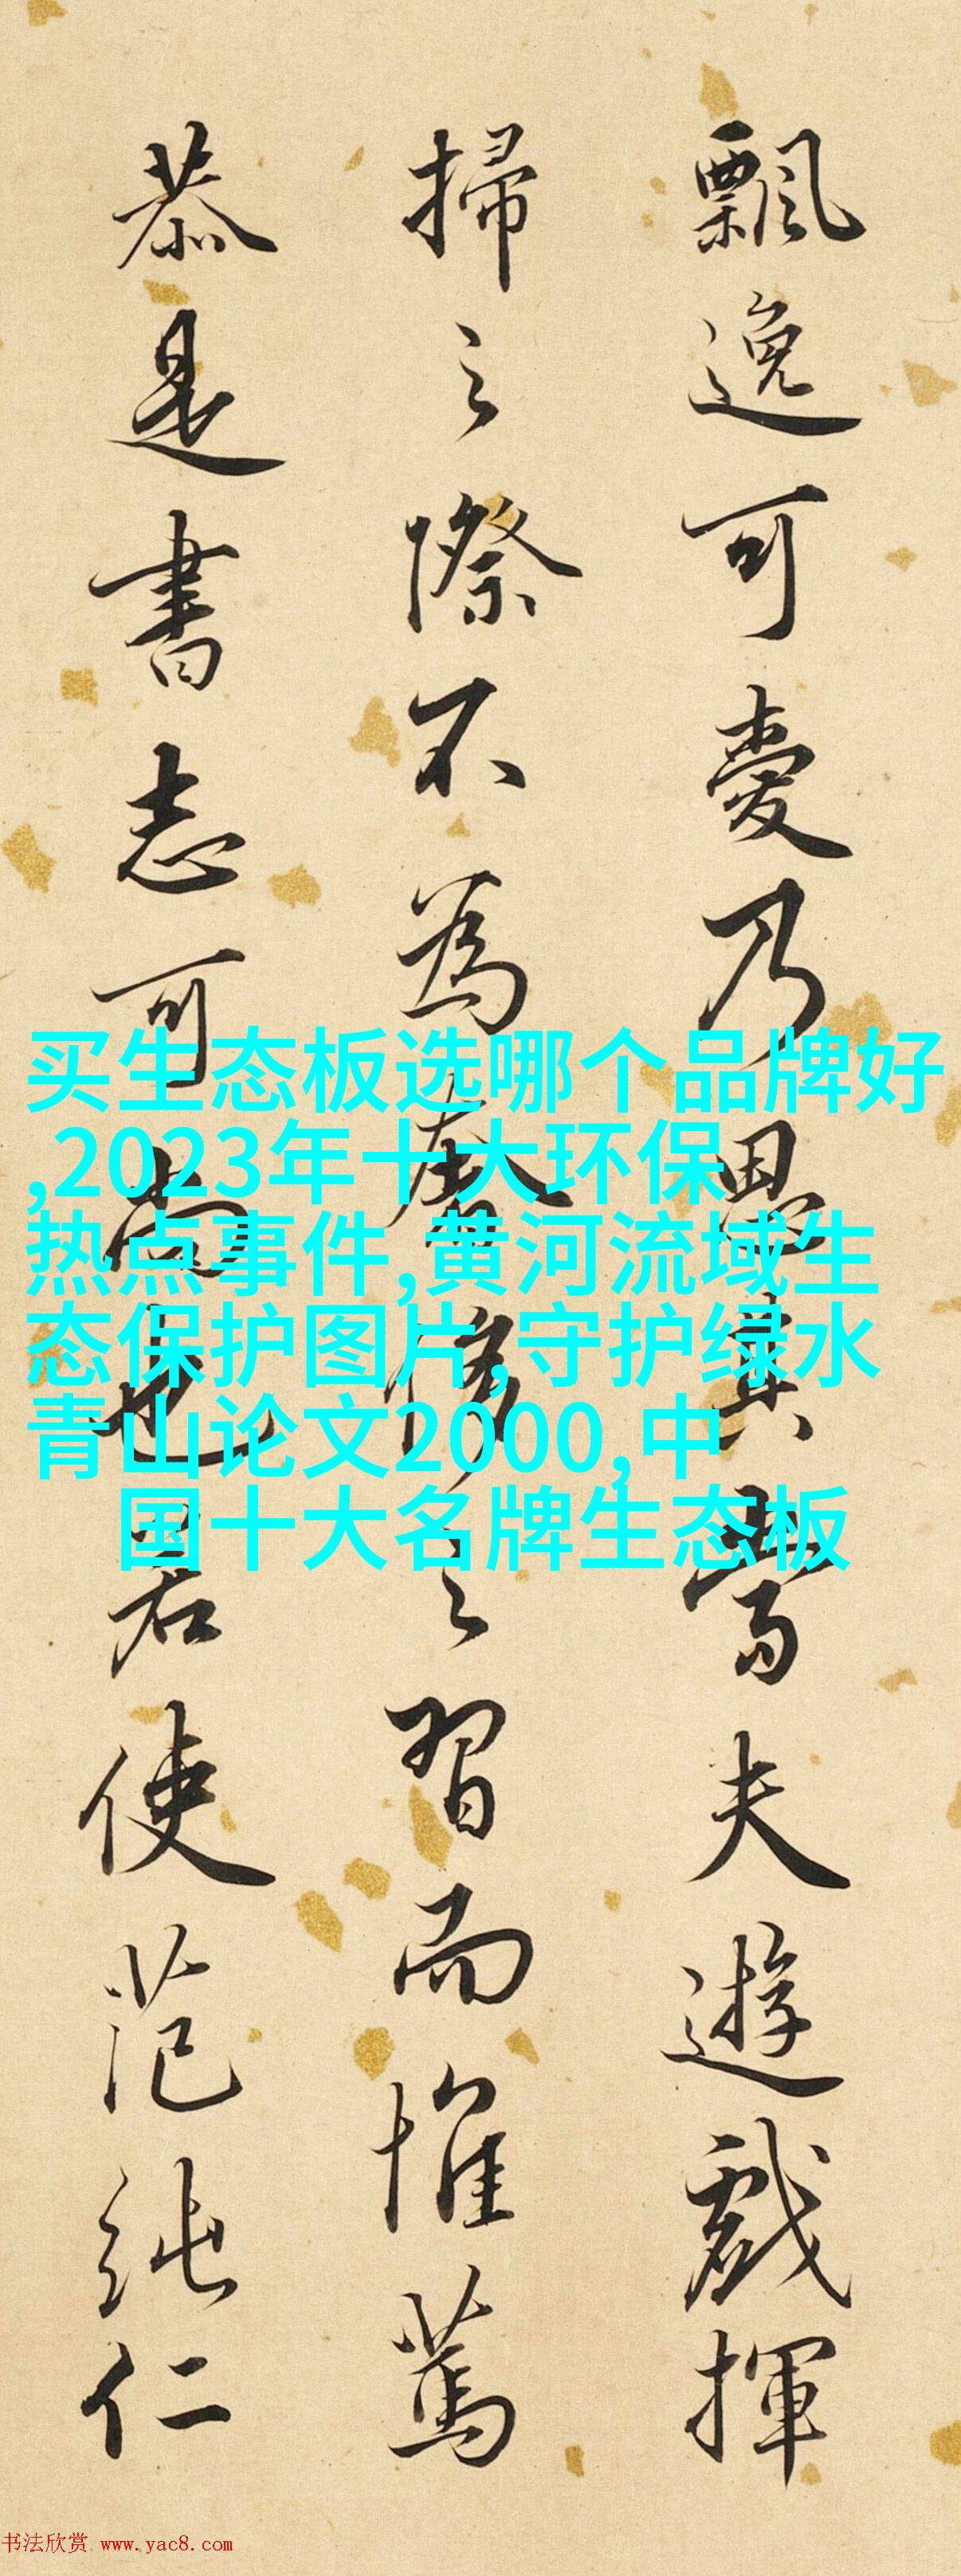 飄逸可愛乃夫遊戲揮
掃之際不為之習而惟篤
恭是書志可尚也君使范純仁
买生态板选哪个品牌好
,2023年十大环保
热点事件,黄河流域生
态保护图片,守护绿水
青山论文2000,中
国十大名牌生态板
书法欣赏 www.yac8.com